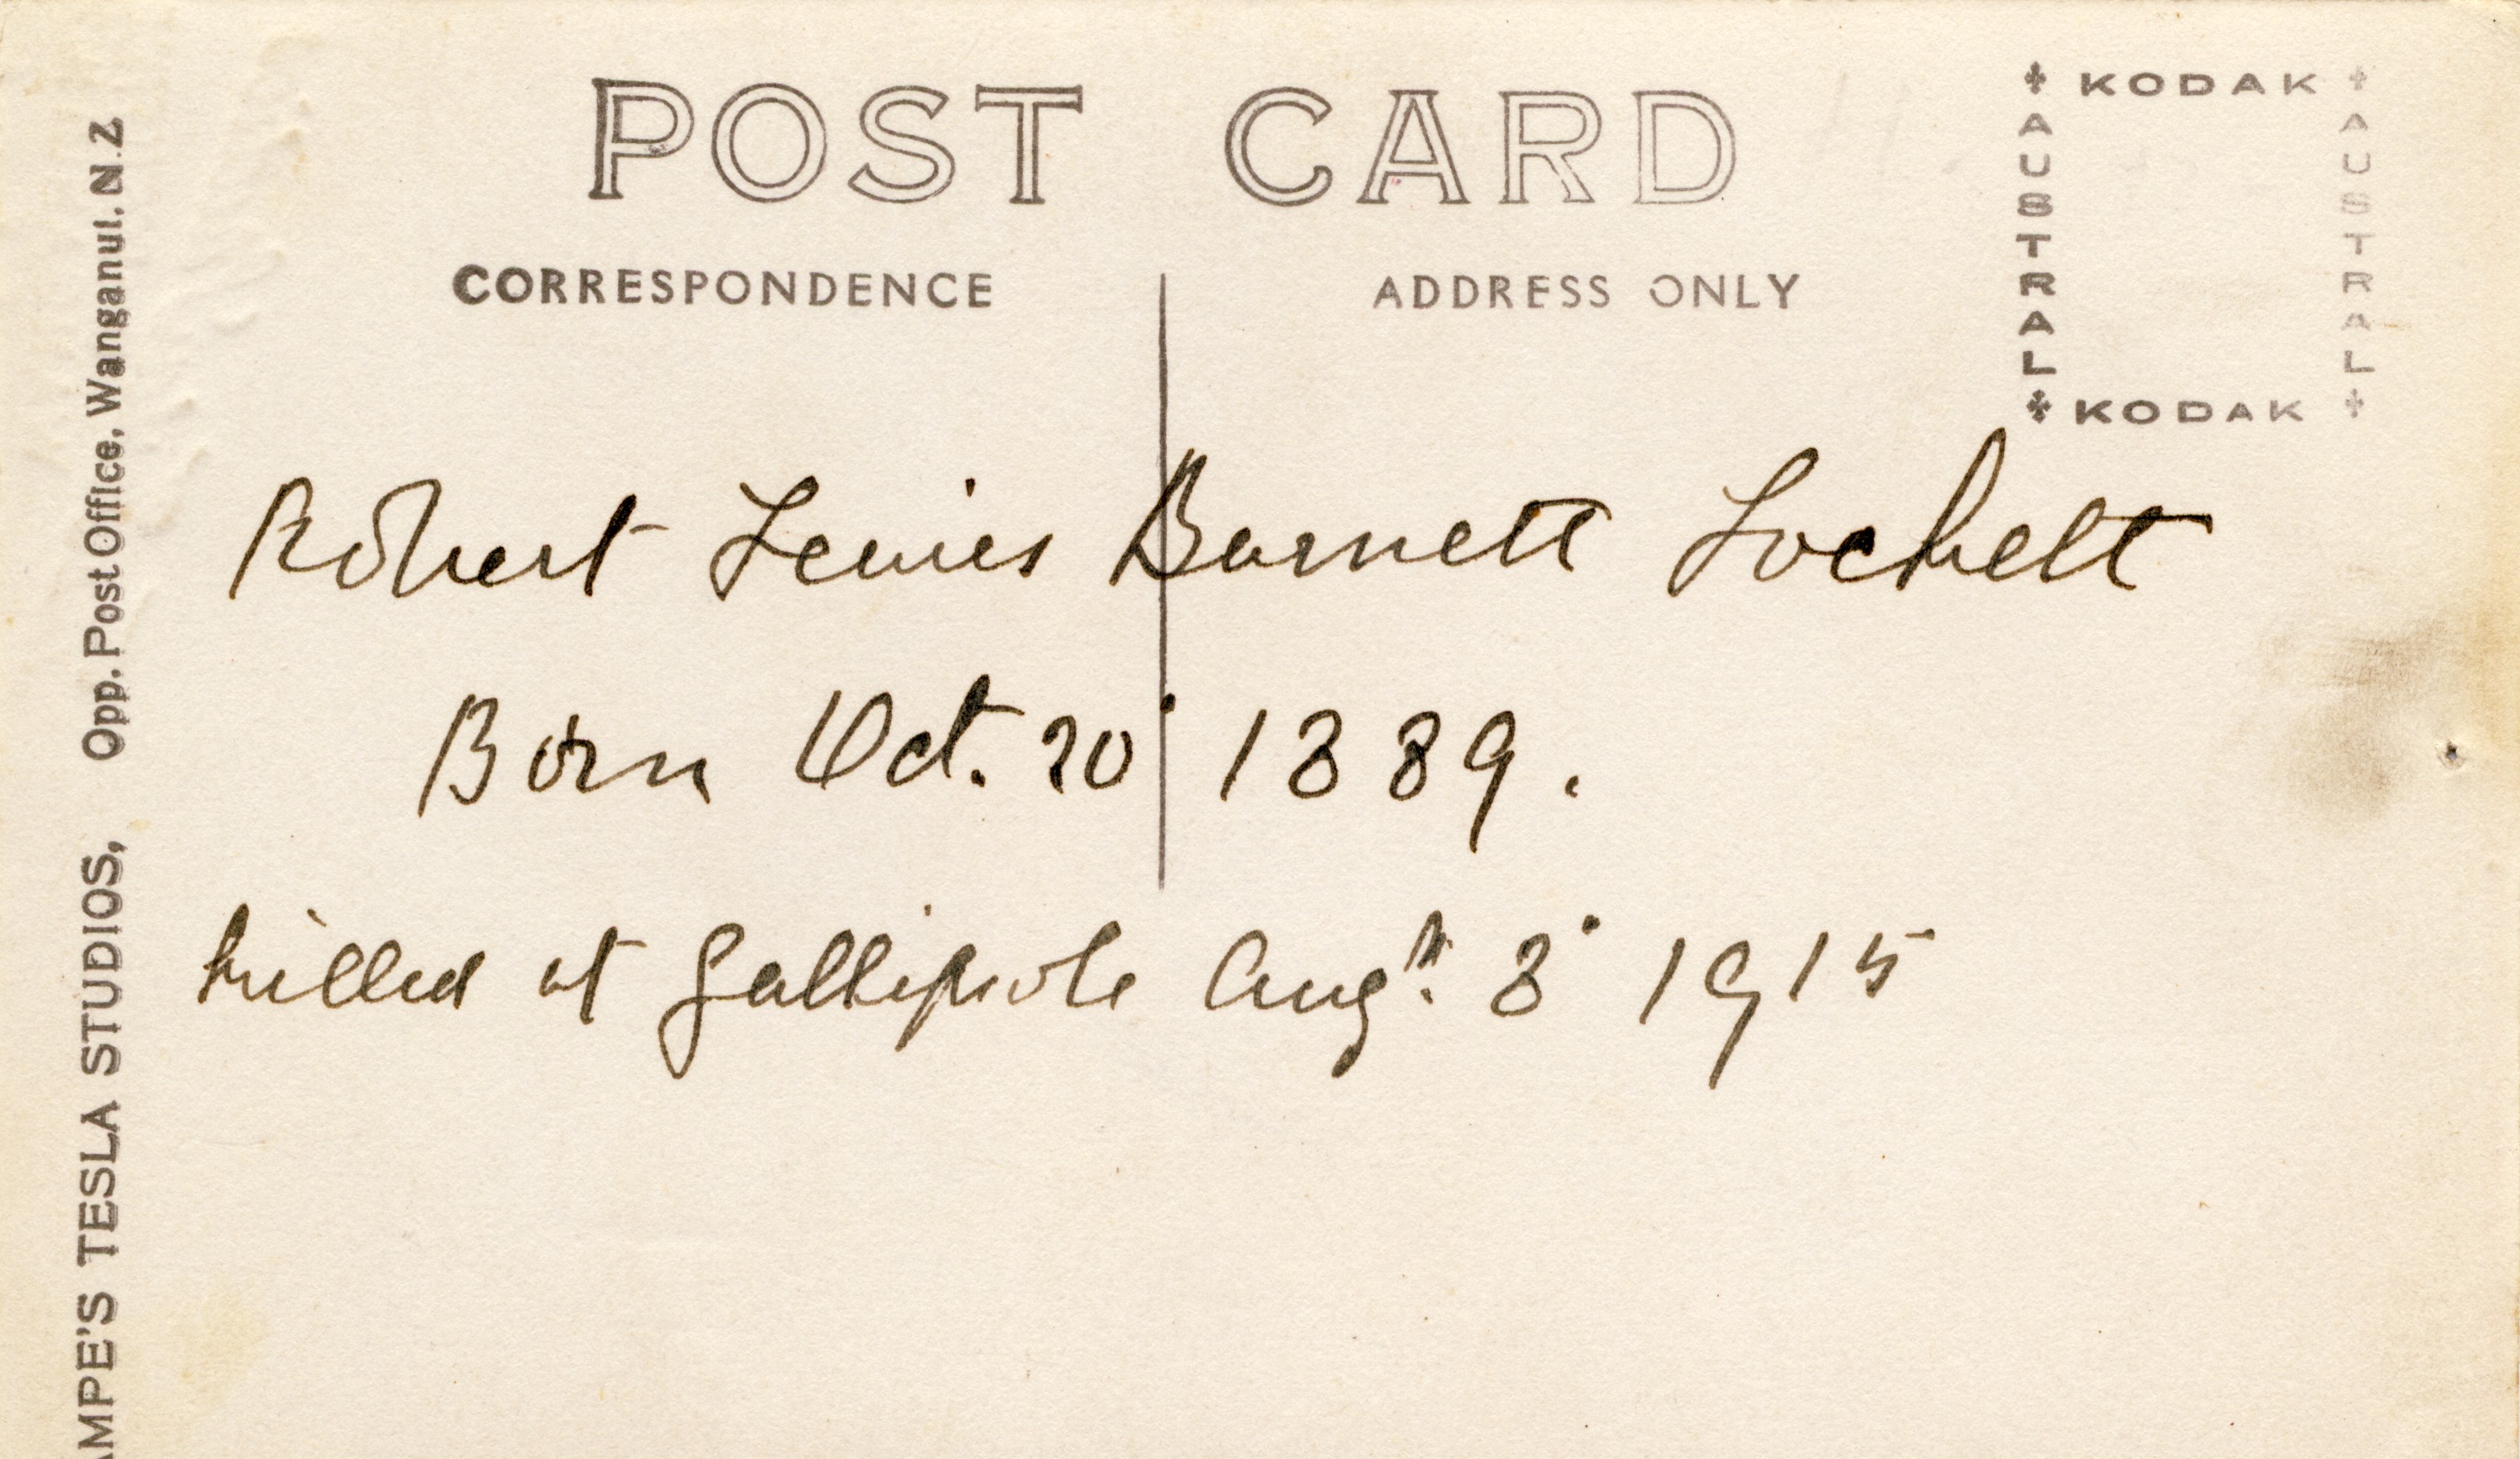 POST CARD
CORRESPONDENCE
ADDRESS ONLY
KODAK
AUSTRAL
AUSTRAL
KODAK
Robert Lewis Barnett Lockett
Born Oct. 20 1889.
killed at Gallipoli Augst. 8 1915
AMPE'S TESLA STUDIOS, Opp. Post Office, Wanganui. N.Z